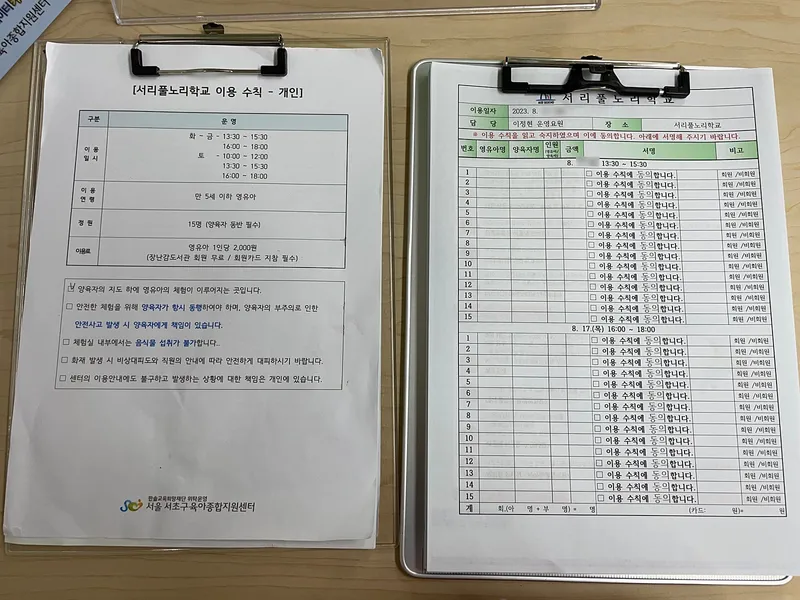 육아종합지원센터
[서리풀노리학교 이용 수칙 - 개인]
구분 운 영
이 용 일 시
화 - 금 - 13:30 ~ 15:30
16:00 ~ 18:00
토 - 10:00 ~ 12:00
13:30 ~ 15:30
16:00 ~ 18:00
이 용 연 령 만 5세 이하 영유아
정 원 15명 (양육자 동반 필수)
이용료 영유아 1인당 2,000원
(장난감도서관 회원 무료 / 회원카드 지참 필수)
양육자의 지도 하에 영유아의 체험이 이루어지는 곳입니다.
□ 안전한 체험을 위해 양육자가 항시 동행하여야 하며, 양육자의 부주의로 인한
안전사고 발생 시 양육자에게 책임이 있습니다.
□ 체험실 내부에서는 음식물 섭취가 불가합니다.
□ 화재 발생 시 비상대피도와 직원의 안내에 따라 안전하게 대피하시기 바랍니다.
□ 센터의 이용안내에도 불구하고 발생하는 상황에 대한 책임은 개인에 있습니다.
한솔교육희망재단 위탁운영
서울 서초구육아종합지원센터
서리풀노리학교
이용일자 2023. 8.
담 당 이정현 운영요원 장 소 서리풀노리학교
※ 이용 수칙을 읽고 숙지하였으며 이에 동의합니다. 아래에 서명해 주시기 바랍니다.
번호 영유아명 양육자명 인원 금액 서명 비고
8. 13:30 ~ 15:30
1 □ 이용 수칙에 동의합니다. 회원 /비회원
2 □ 이용 수칙에 동의합니다. 회원 /비회원
3 □ 이용 수칙에 동의합니다. 회원 /비회원
4 □ 이용 수칙에 동의합니다. 회원 /비회원
5 □ 이용 수칙에 동의합니다. 회원 /비회원
6 □ 이용 수칙에 동의합니다. 회원 /비회원
7 □ 이용 수칙에 동의합니다. 회원 /비회원
8 □ 이용 수칙에 동의합니다. 회원 /비회원
9 □ 이용 수칙에 동의합니다. 회원 /비회원
10 □ 이용 수칙에 동의합니다. 회원 /비회원
11 □ 이용 수칙에 동의합니다. 회원 /비회원
12 □ 이용 수칙에 동의합니다. 회원 /비회원
13 □ 이용 수칙에 동의합니다. 회원 /비회원
14 □ 이용 수칙에 동의합니다. 회원 /비회원
15 □ 이용 수칙에 동의합니다. 회원 /비회원
8. 17.(목) 16:00 ~ 18:00
1 □ 이용 수칙에 동의합니다. 회원 /비회원
2 □ 이용 수칙에 동의합니다. 회원 /비회원
3 □ 이용 수칙에 동의합니다. 회원 /비회원
4 □ 이용 수칙에 동의합니다. 회원 /비회원
5 □ 이용 수칙에 동의합니다. 회원 /비회원
6 □ 이용 수칙에 동의합니다. 회원 /비회원
7 □ 이용 수칙에 동의합니다. 회원 /비회원
8 □ 이용 수칙에 동의합니다. 회원 /비회원
9 □ 이용 수칙에 동의합니다. 회원 /비회원
10 □ 이용 수칙에 동의합니다. 회원 /비회원
11 □ 이용 수칙에 동의합니다. 회원 /비회원
12 □ 이용 수칙에 동의합니다. 회원 /비회원
13 □ 이용 수칙에 동의합니다. 회원 /비회원
14 □ 이용 수칙에 동의합니다. 회원 /비회원
15 □ 이용 수칙에 동의합니다. 회원 /비회원
계 회.(아 명 + 부 명) = 명 (카드: 원)= 원